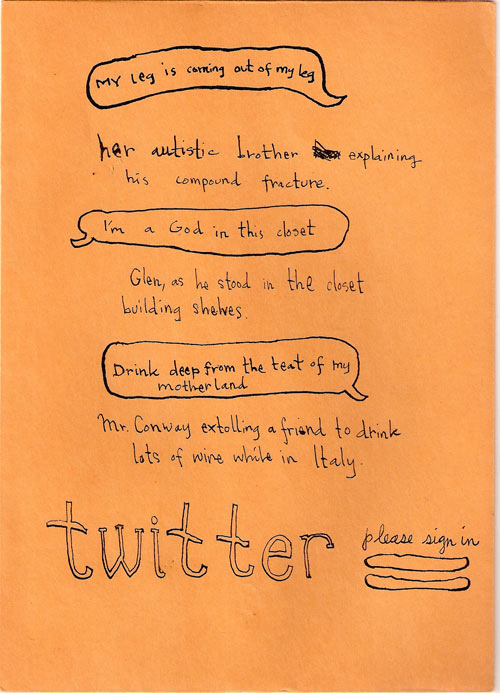 MY Leg is coming out of my leg
her autistic brother explaining
his compound fracture.
I'm a God in this closet
Glen, as he stood in the closet
building shelves.
Drink deep from the teat of my
motherland
Mr. Conway extolling a friend to drink
lots of wine while in Italy.
twitter
please sign in